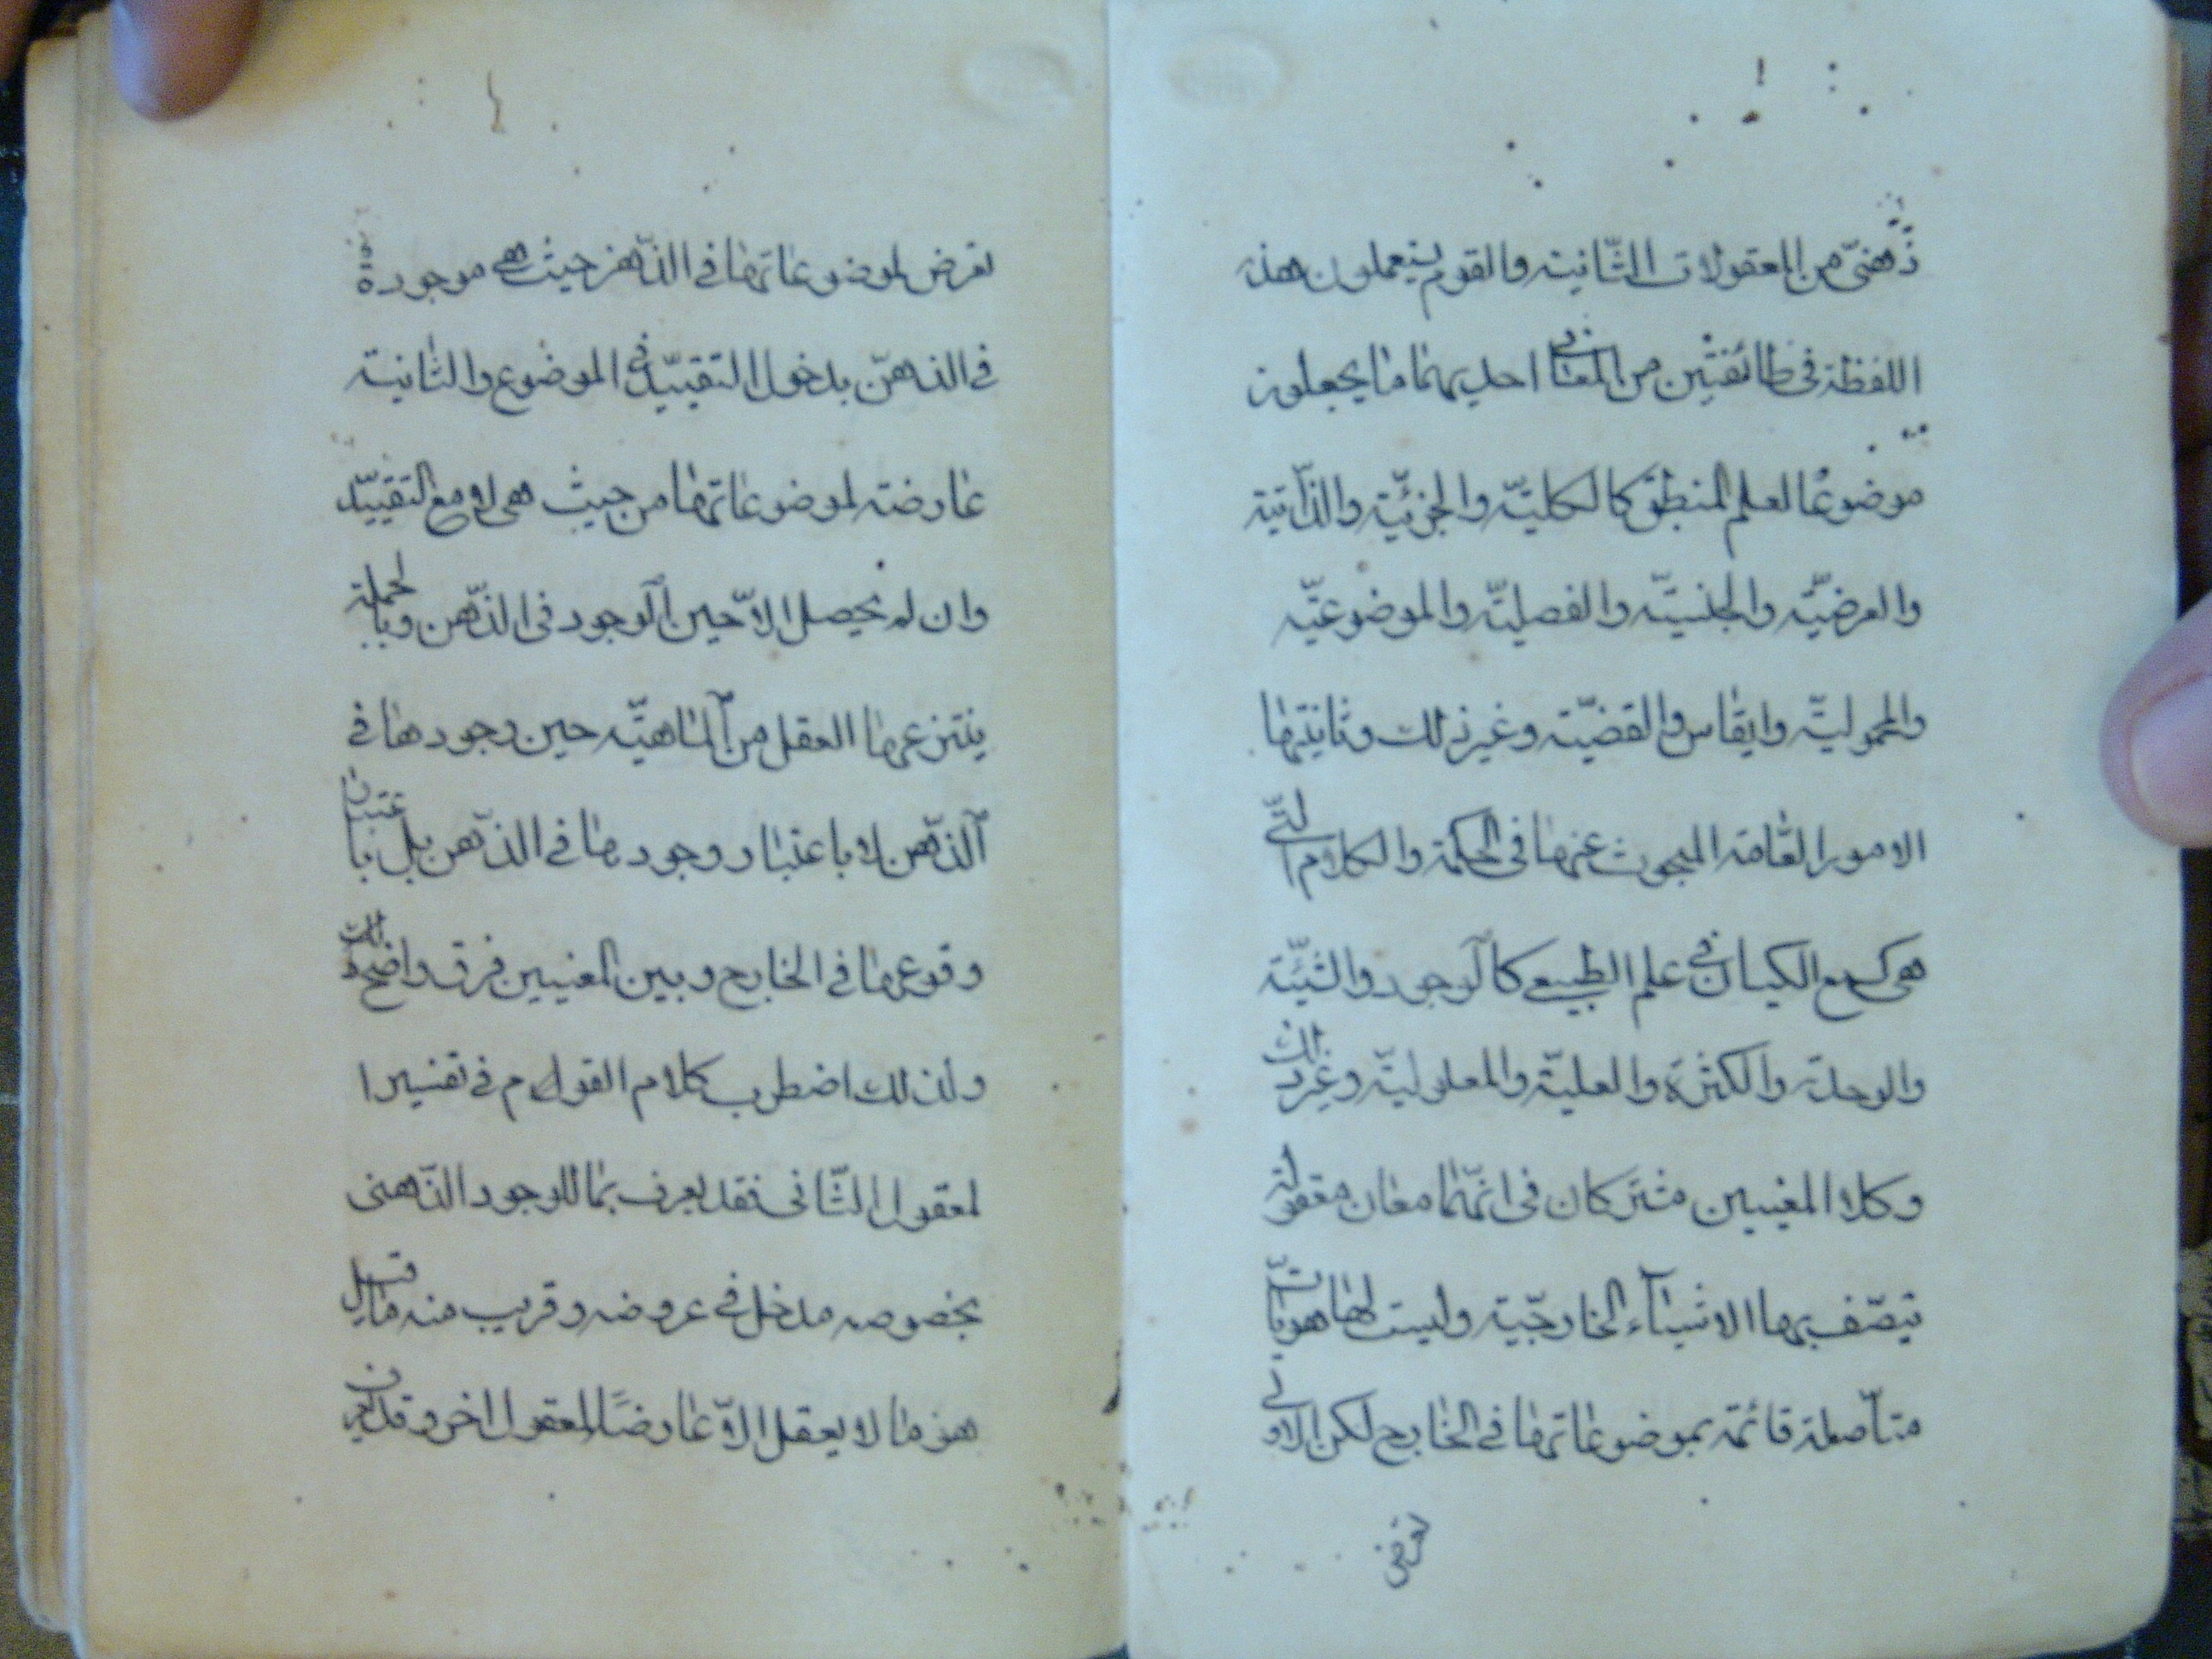 ذهنّى من المعقولات الثّانية والقوم يستعملون هذه
اللفظة فى طائفتين من المعانى احديهما ما يجعلون
موضوعًا لعلم المنطق كالكليّة والجزئيّة والذّاتية
والعرضيّه والجنسيّه والفصليّه والموضوعيّه
والمحموليّه والقضيّة وغير ذلك وثانيتها
الامور العّامة المبحوث عنها فى الحكمة والكلام الّتى
هى كسمع الكيان فى علم الطبيعى كالوجود والشيئيّة
والوحدة والكثرة والعليّة والمعلوليّة وغير ذلك
وكلا المعنيين مشتركان فى انّهما معان معقولة
تتّصف بها الاشيآء الخارجّية وليست لها هويّات
متأصلة قائمة بموضوعاتها فى الخارج لكن الاولى
تعرض
تعرض لموضوعاتها فى الذّهن من حيث هى موجودة
فى الذهنّ بدخول التقييّد فى الموضوع والثانية
عارضة لموضوعاتها من حيث هى لا مع التقييّد
وان لم يحصل الاّ حين الوجود فى الذّهن وبالجملة
ينتزعها العقل من الماهيّه حين وجودها فى
الذّهن لا باعتبار وجودها فى الذّهن بل باعتبار
وقوعها فى الخارج وبين المعنيين فرق واضح
ولذلك اضطرب كلام القوم فى تفسير ا
لمعقول الثّانى فقد يعرف بما للوجود الذّهنى
بخصوصه مدخل فى عروضه وقريب منه ما قيل
هو ما لا يعقل الاّ عارضًا لمعقول اخر وقد يعرف